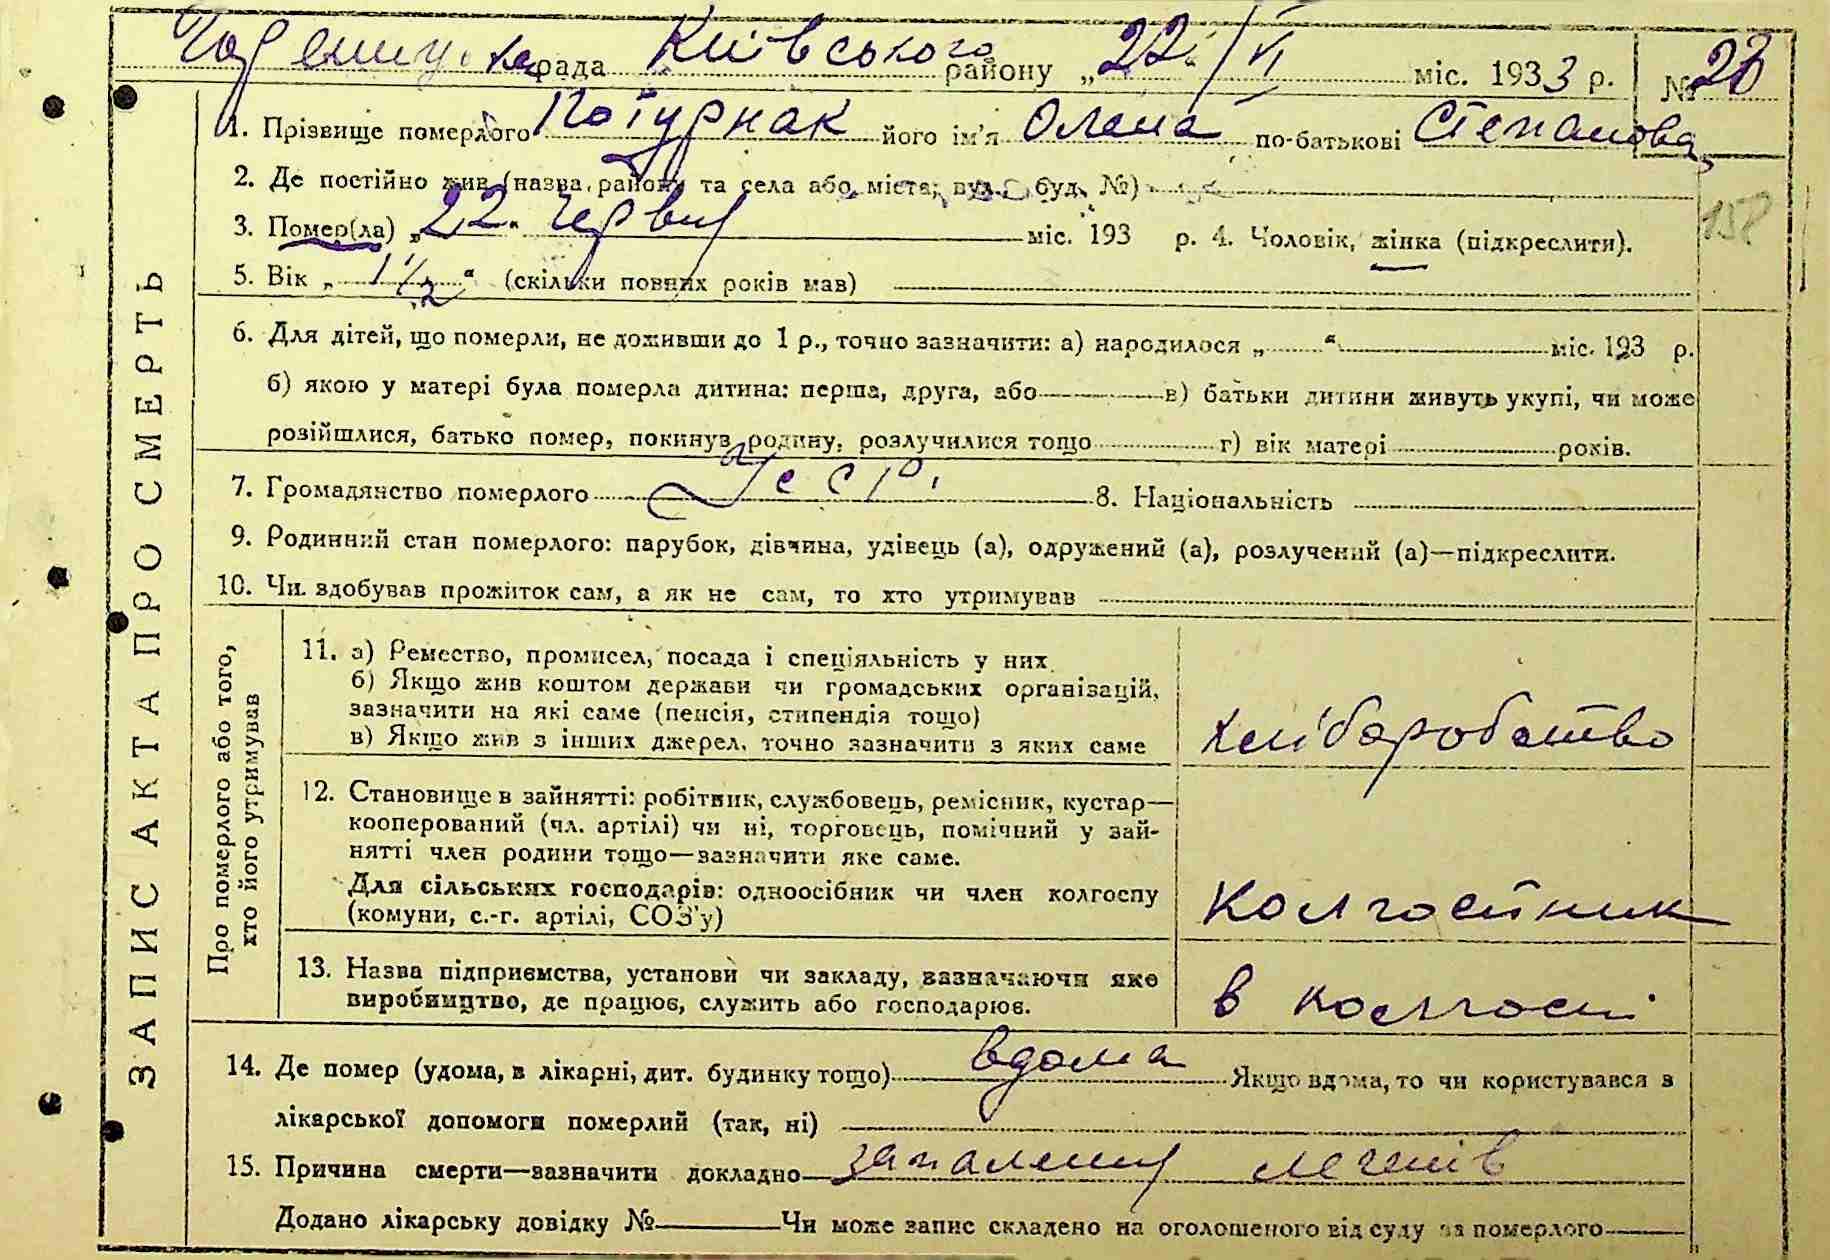 рада Київського району „22/VI міс. 1933 р. № 28
1. Прізвище померлого Потурнак його ім'я Олена по-батькові Степанова
2. Де постійно жив (назва району та села або міста; вул. буд. №)
3. Помер(ла) „22" червня міс. 193 р. 4. Чоловік, жінка (підкреслити).
5. Вік „1 1/2" (скільки повних років мав)
6. Для дітей, що померли, не доживши до 1 р., точно зазначити: а) народилося „ " міс. 193 р.
б) якою у матері була померла дитина: перша, друга, або в) батьки дитини живуть укупі, чи може
розійшлися, батько помер, покинув родину, розлучилися тощо г) вік матері років.
7. Громадянство померлого УССР. 8. Національність
9. Родинний стан померлого: парубок, дівчина, удівець (а), одружений (а), розлучений (а)—підкреслити.
10. Чи здобував прожиток сам, а як не сам, то хто утримував
ЗАПИС АКТА ПРО СМЕРТЬ
Про померлого або того,
хто його утримував
11. а) Ремество, промисел, посада і спеціяльність у них
б) Якщо жив коштом держави чи громадських організацій,
зазначити на які саме (пенсія, стипендія тощо)
в) Якщо жив з інших джерел, точно зазначити з яких саме
хліборобство
12. Становище в зайнятті: робітник, службовець, ремісник, кустар—
кооперований (чл. артілі) чи ні, торговець, помічний у зай-
нятті член родини тощо—зазначити яке саме.
Для сільських господарів: одноосібник чи член колгоспу
(комуни, с.-г. артілі, СОЗ'у)
колгоспник
13. Назва підприємства, установи чи закладу, зазначаючи яке
виробництво, де працює, служить або господарює.
в колгоспі
14. Де помер (удома, в лікарні, дит. будинку тощо) вдома Якщо вдома, то чи користувався з
лікарської допомоги померлий (так, ні)
15. Причина смерти—зазначити докладно запалення легенів
Додано лікарську довідку № Чи може запис складено на оголошеного від суду за померлого